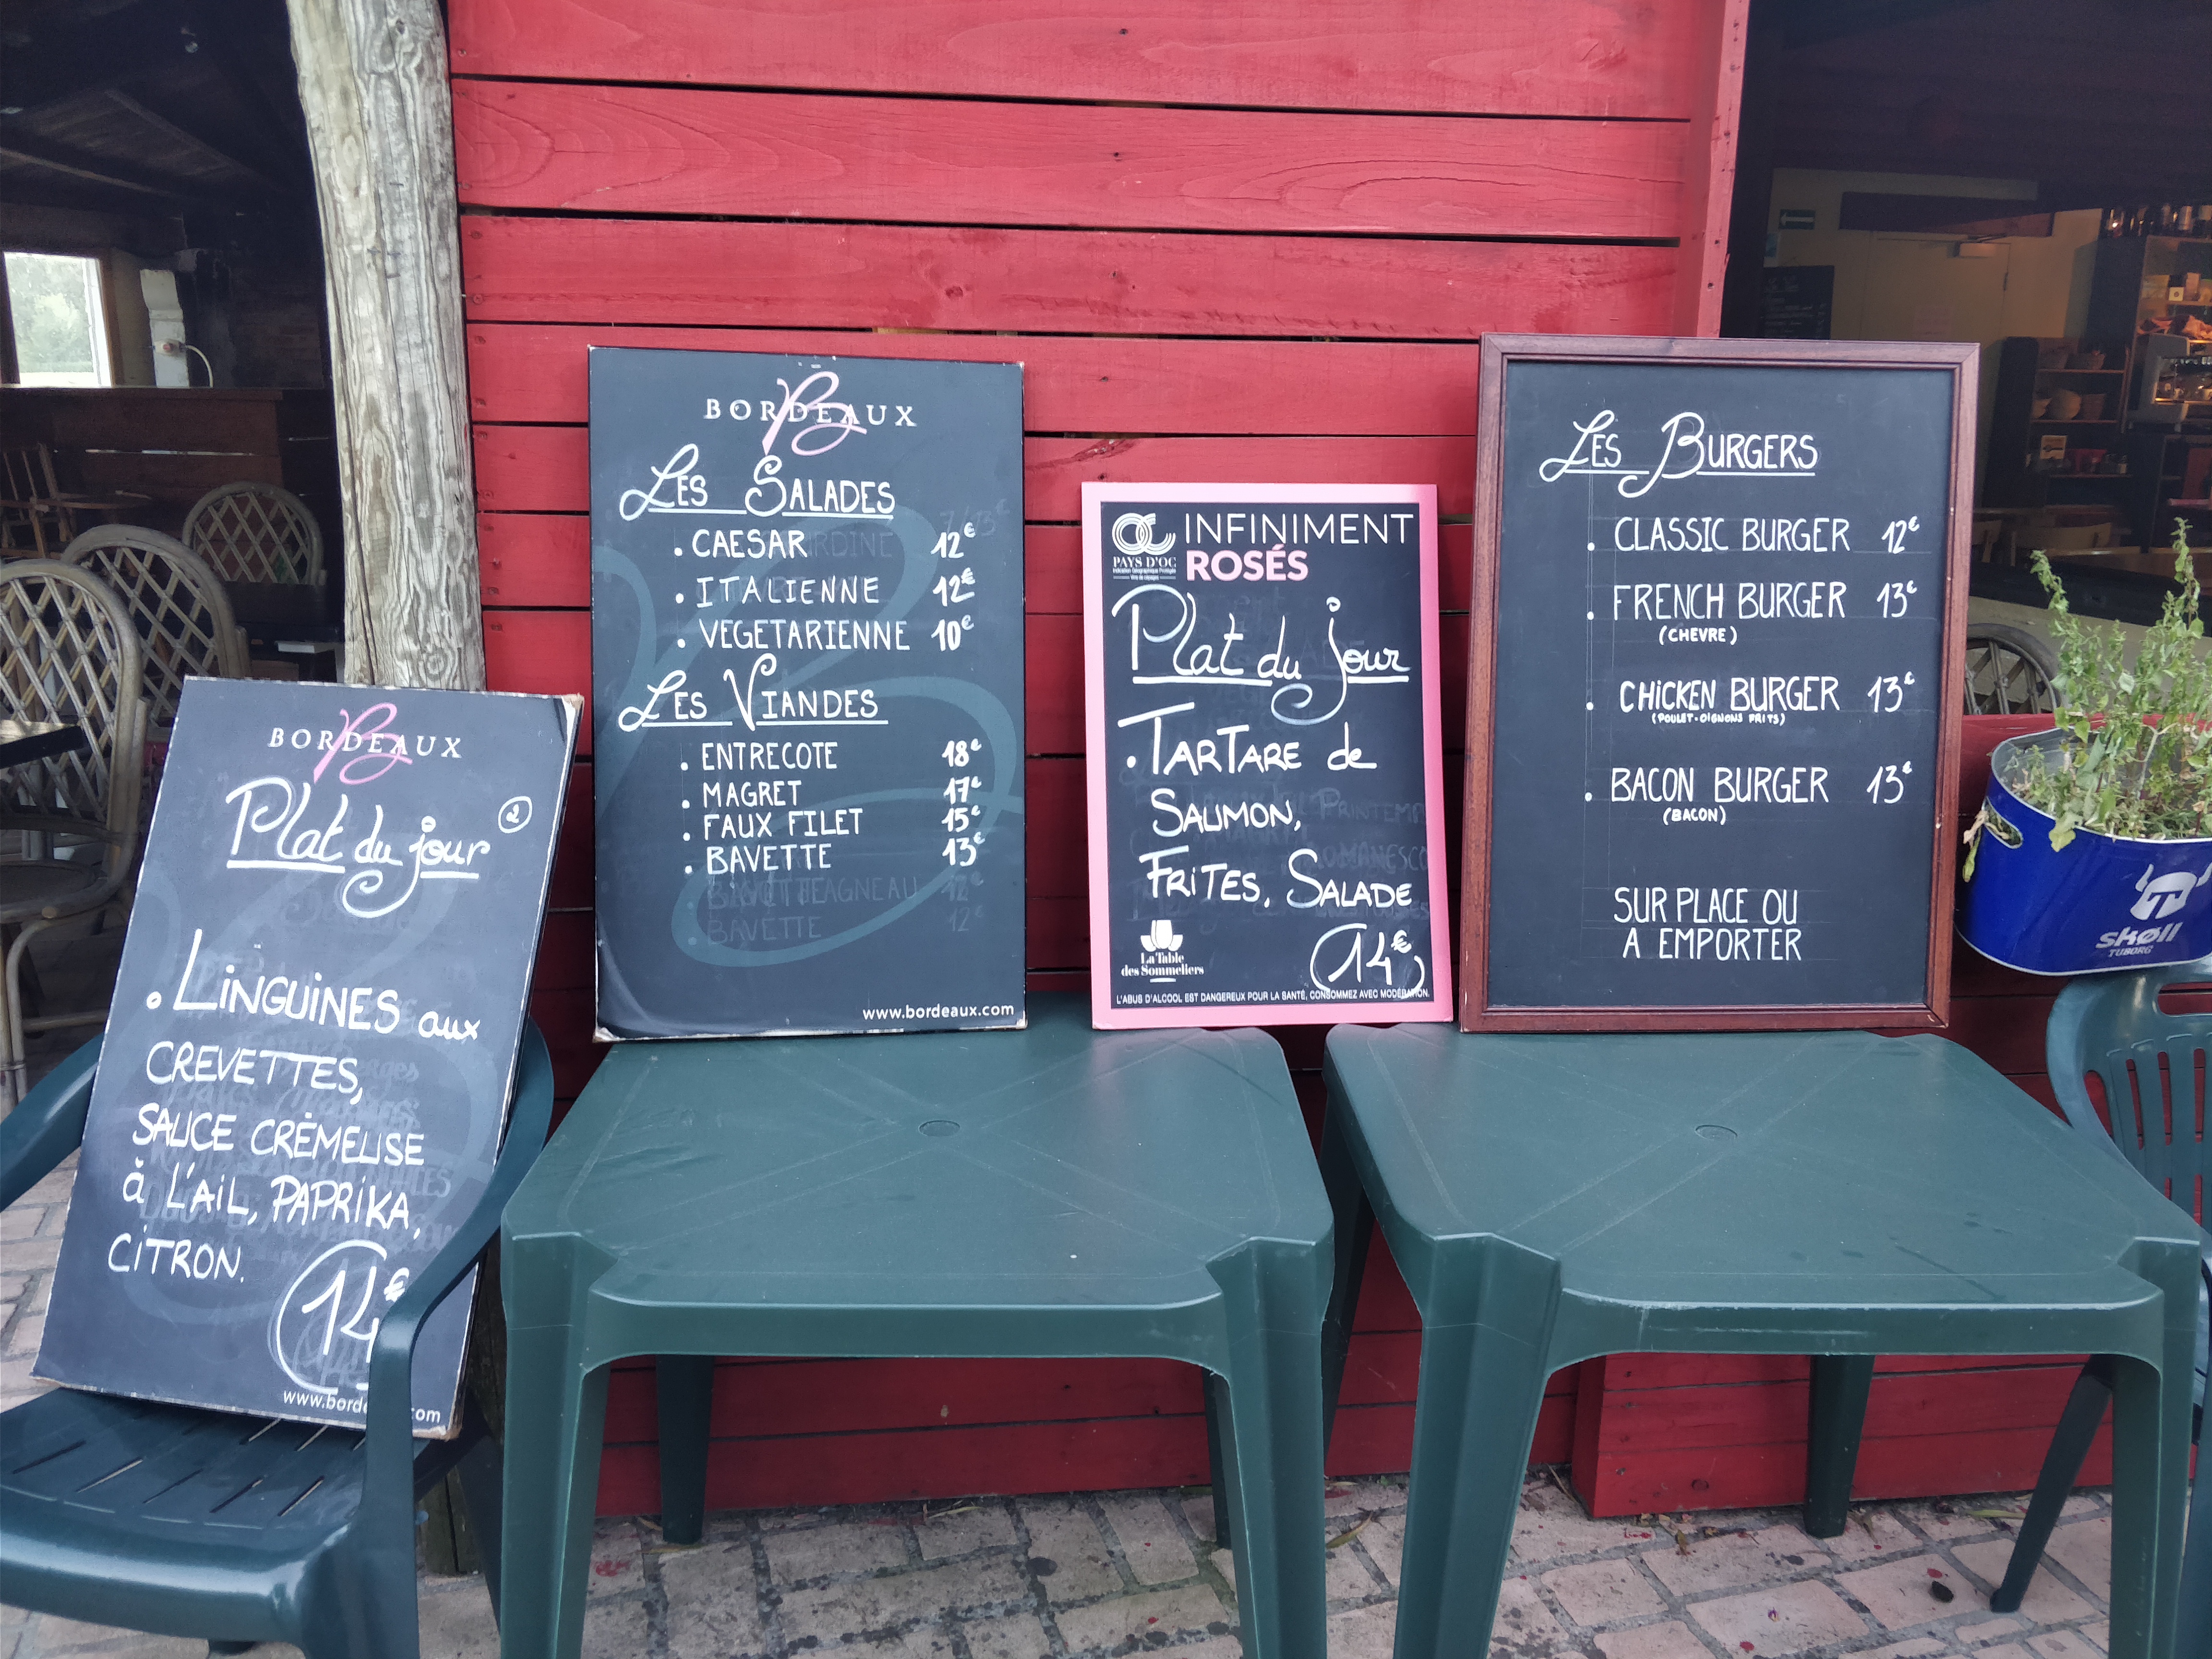 BORDEAUX
Plat du jour 2
. LINGUINES aux
CREVETTES,
SAUCE CRÉMEUSE
à L'AIL, PAPRIKA,
CITRON.
14€
BORDEAUX
LES SALADES
. CAESAR 12€
. ITALIENNE 12€
. VEGETARIENNE 10€
LES VIANDES
. ENTRECOTE 18€
. MAGRET 17€
. FAUX FILET 15€
. BAVETTE 13€
BAVETTE 12€
www.bordeaux.com
PAYS D'OC
INFINIMENT
ROSÉS
Plat du jour
. TARTARE de
SAUMON,
FRITES, SALADE
14€
La Table
des Sommeliers
L'ABUS D'ALCOOL EST DANGEREUX POUR LA SANTÉ, CONSOMMEZ AVEC MODÉRATION.
LES BURGERS
. CLASSIC BURGER 12€
. FRENCH BURGER 13€
(CHEVRE)
. CHICKEN BURGER 13€
(POULET-OIGNONS FRITS)
. BACON BURGER 13€
(BACON)
SUR PLACE OU
A EMPORTER
skøll
TUBORG